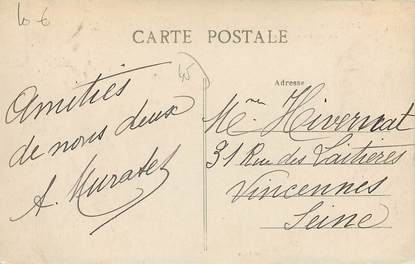 10 €
CARTE POSTALE
45
Adresse
Amitiés
de nous deux
A. Muratel
Mme Hivernat
31 Rue des Laitières
Vincennes
Seine